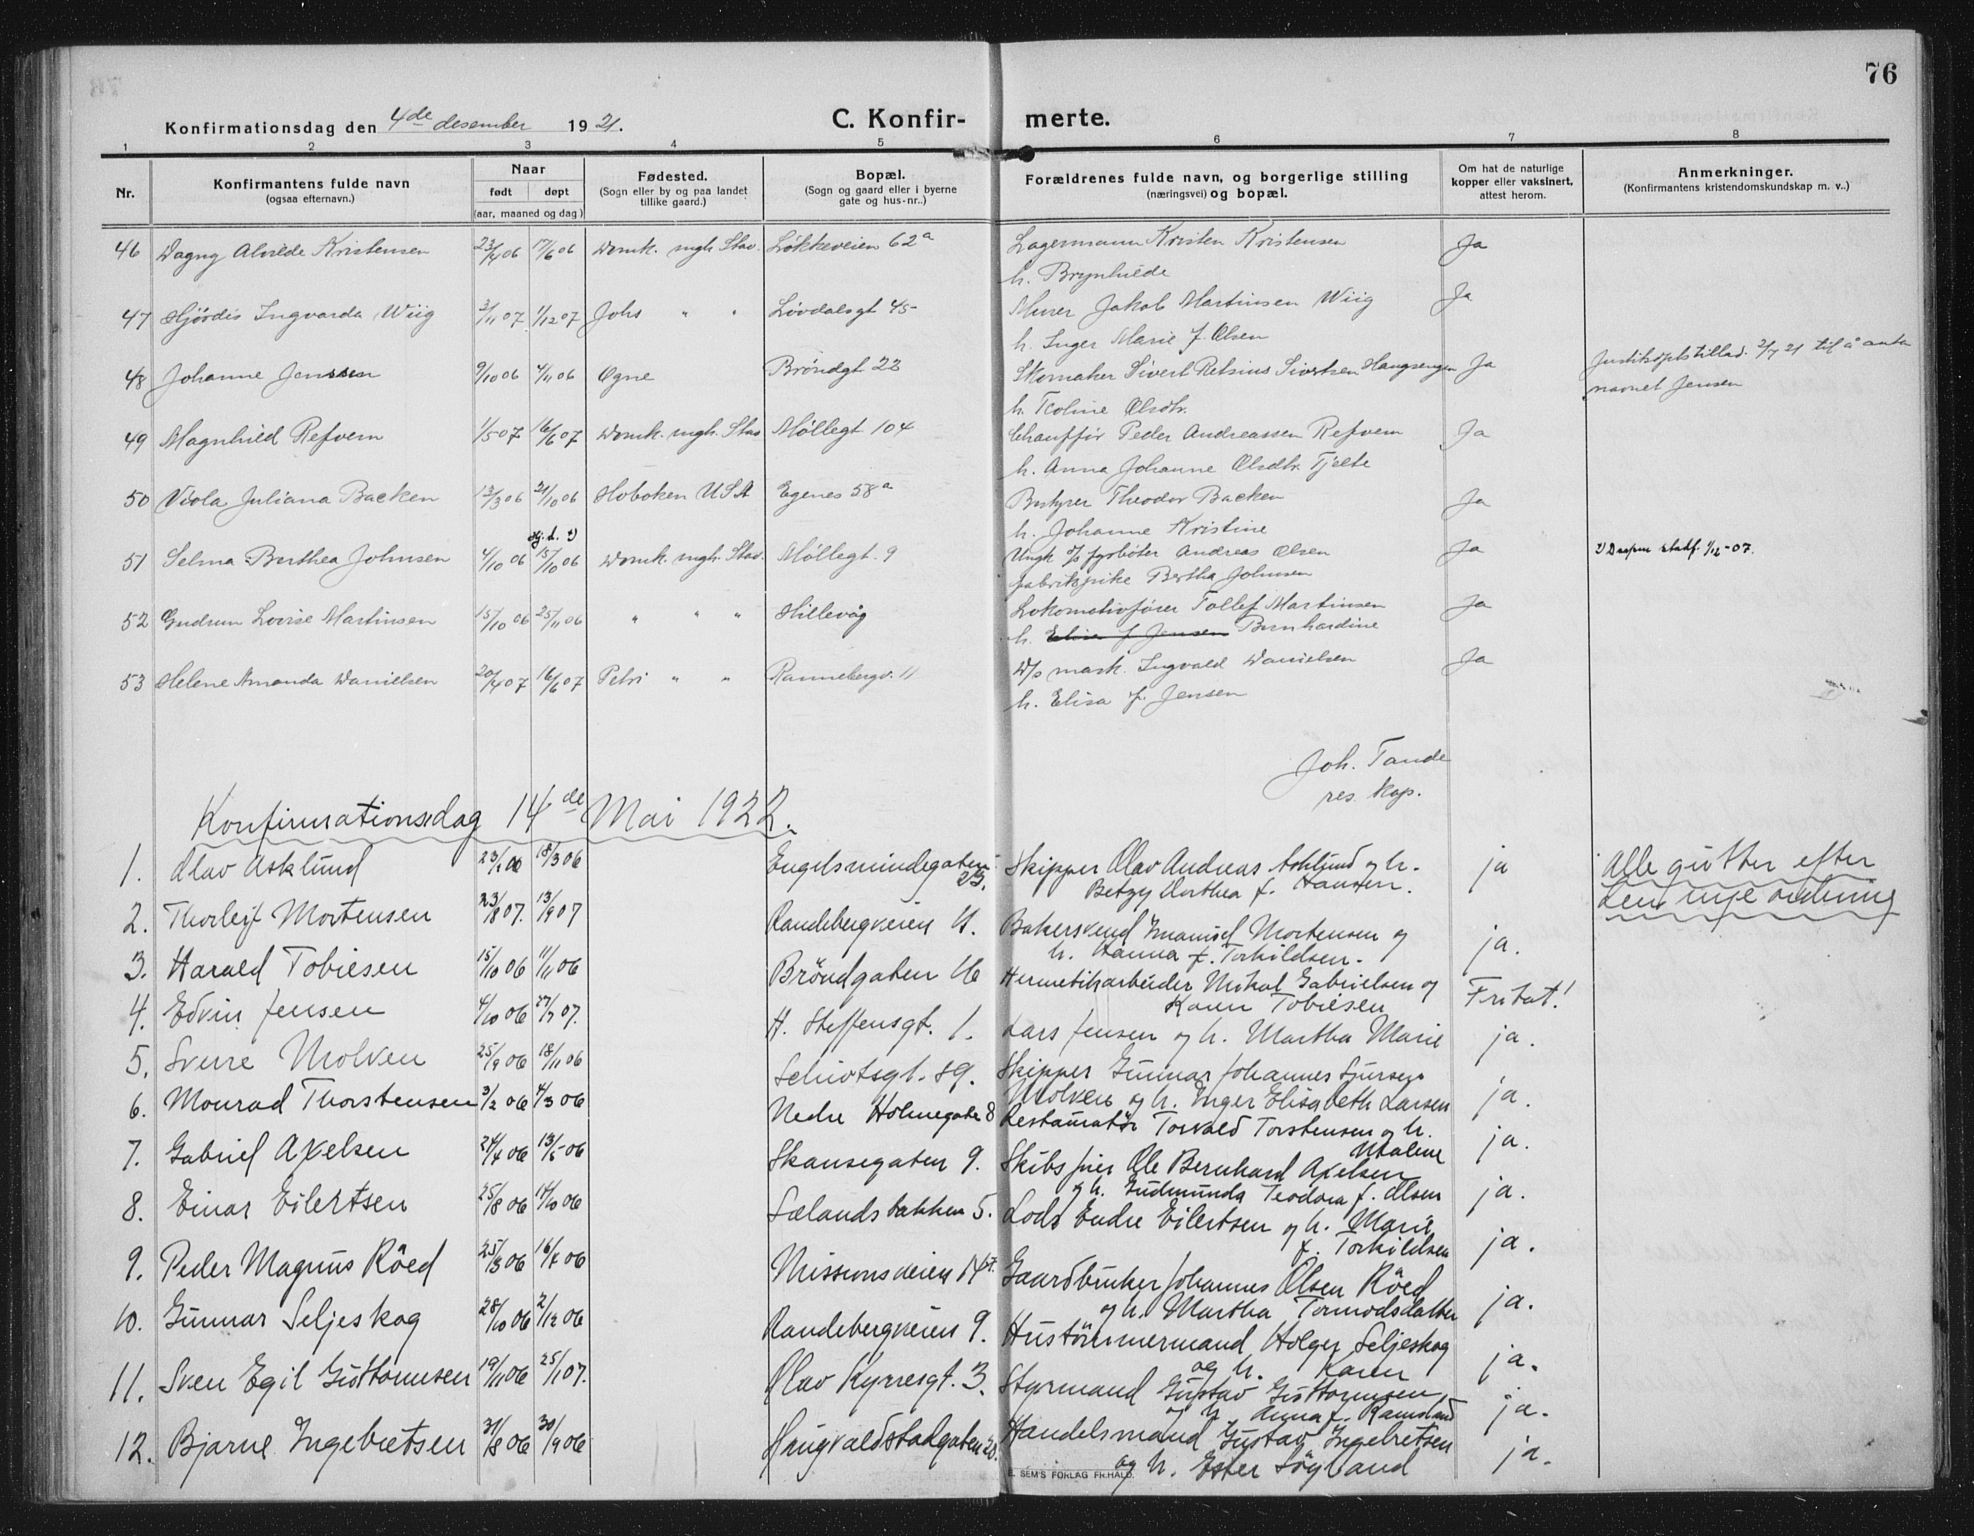 76
Konfirmationsdag den 4de desember 1921.
C. Konfirmerte.
1 2 3 4 5 6 7 8
Nr.
Konfirmantens fulde navn
(ogsaa efternavn.)
Naar
født døpt
(aar, maaned og dag)
Fødested.
(Sogn eller by og paa landet
tillike gaard.)
Bopæl.
(Sogn og gaard eller i byerne
gate og hus-nr..)
Forældrenes fulde navn, og borgerlige stilling
(næringsvei) og bopæl.
Om hat de naturlige
kopper eller vaksinert,
attest herom.
Anmerkninger.
(Konfirmantens kristendomskundskap m. v..)
46 Dagny Alvilde Kristensen 23/4 06 17/6 06 Domk. mgh. Stav. Løkkeveien 62a Lagermann Kristen Kristensen Ja
h. Brynhilde
47 Hjördis Ingvarda Wiig 3/11 07 1/12 07 Johs " " Løvdalsgt 45 Murer Jakob Martinsen Wiig Ja
h. Inger Marie f. Olsen
48 Johanne Jenssen 9/10 06 4/11 06 Ogne Brøndgt 22 Skomaker Sivert Retsius Sivertsen Haugsengen Ja 2/7 21 til å anta
h. Teoline Olsdtr. navnet Jensen
49 Magnhild Refvem 1/5 07 16/6 07 Domk. mgh. Stav Møllegt 104 Chauffør Peder Andreassen Refvem Ja
h. Anna Johanne Olsdtr. Tjelte
50 Viola Juliana Backen 13/3 06 21/10 06 Hoboken USA Egenes 58a Bestyrer Theodor Backen Ja
h. Johanne Kristine
51 Selma Berthea Johnsen 4/10 06 hj. d. 1) 15/10 06 Domk. mgh. Stav. Møllegt. 9 Ungk. o/s fyrbøter Andreas Olsen Ja 1) Daapen stadf. 1/12-07.
fabrikpike Bertha Johnsen
52 Gudrun Lovise Martinsen 15/10 06 25/11 06 " " " Hillevåg Lokomotivfører Tollef Martinsen Ja
h. Elisa f. Jensen Bernhardine
53 Helene Amanda Danielsen 20/4 07 16/6 07 Petri " " Rannebergv. 11 D/s mask. Ingvald Danielsen Ja
h. Elisa f. Jensen
Joh. Tande
res. kap.
Konfirmationsdag 14de Mai 1922.
1. Olav Asklund 18/3 06 Engelsmindegaten 25. Skipper Olav Andreas Asklund og h. ja Alle gutter efter
Betzy Dorthea f. Hansen. den nye ordning
2. Thorleif Mortensen 23/8 07. 13/9 07 Randebergveien 4. Bakersvend Emanuel Mortensen og ja.
h. Hanna f. Torkildsen.
3. Harald Tobiesen 15/10 06 11/11 06 Brøndgaten 46 Hermetikarbeider Mikal Gabrielsen og Fritat!
Karen Tobiesen
4. Edvin Jensen 4/10 06 27/7 07. H. Steffensgt. 1. Lars Jensen og h. Martha Marie ja.
5. Sverre Molven 25/9 06 18/11 06 Schiøtsgt. 89. Skipper Gunnar Johannes Sjursen
Molven og h. Inger Elisabeth Larsen ja.
6. Monrad Thorstensen 3/2 06 4/3 06 Nedre Holmegate 8 Restauratør Torvald Torstensen og h. ja.
Mkaline
7. Gabriel Axelsen 24/4 06 13/5 06 Skansegaten 9. Skibsfører Ole Bernhard Axelsen
og h. Gudmunda Teodora f. Olsen ja.
8. Einar Eilertsen 25/8 06 14/10 06 Sælandsbakken 5. Lods Endre Eilertsen og h. Marie
f. Torkildsen ja.
9. Peder Magnus Röed 25/3 06 16/4 06 Missionsveien 14 Gaardbruker Johannes Olsen Röed
og h. Martha Tormodsdatter ja.
10. Gunnar Seljeskog 28/10 06 2/12 06 Randebergveien 9. Hustömmermand Holger Seljeskog
og h. Karen ja.
11. Sven Egil Guttormsen 19/11 06 25/1 07. Olav Kyrresgt. 3. Styrmand Gustav Guttormsen
og h. Anna f. Ramsland ja.
12. Bjarne Ingebretsen 31/8 06 30/9 06 Haugvaldstadgaten 20. Handelsmand Gustav Ingebretsen
og h. Ester Søyland ja.
E. SEM'S FORLAG FR.HALD.